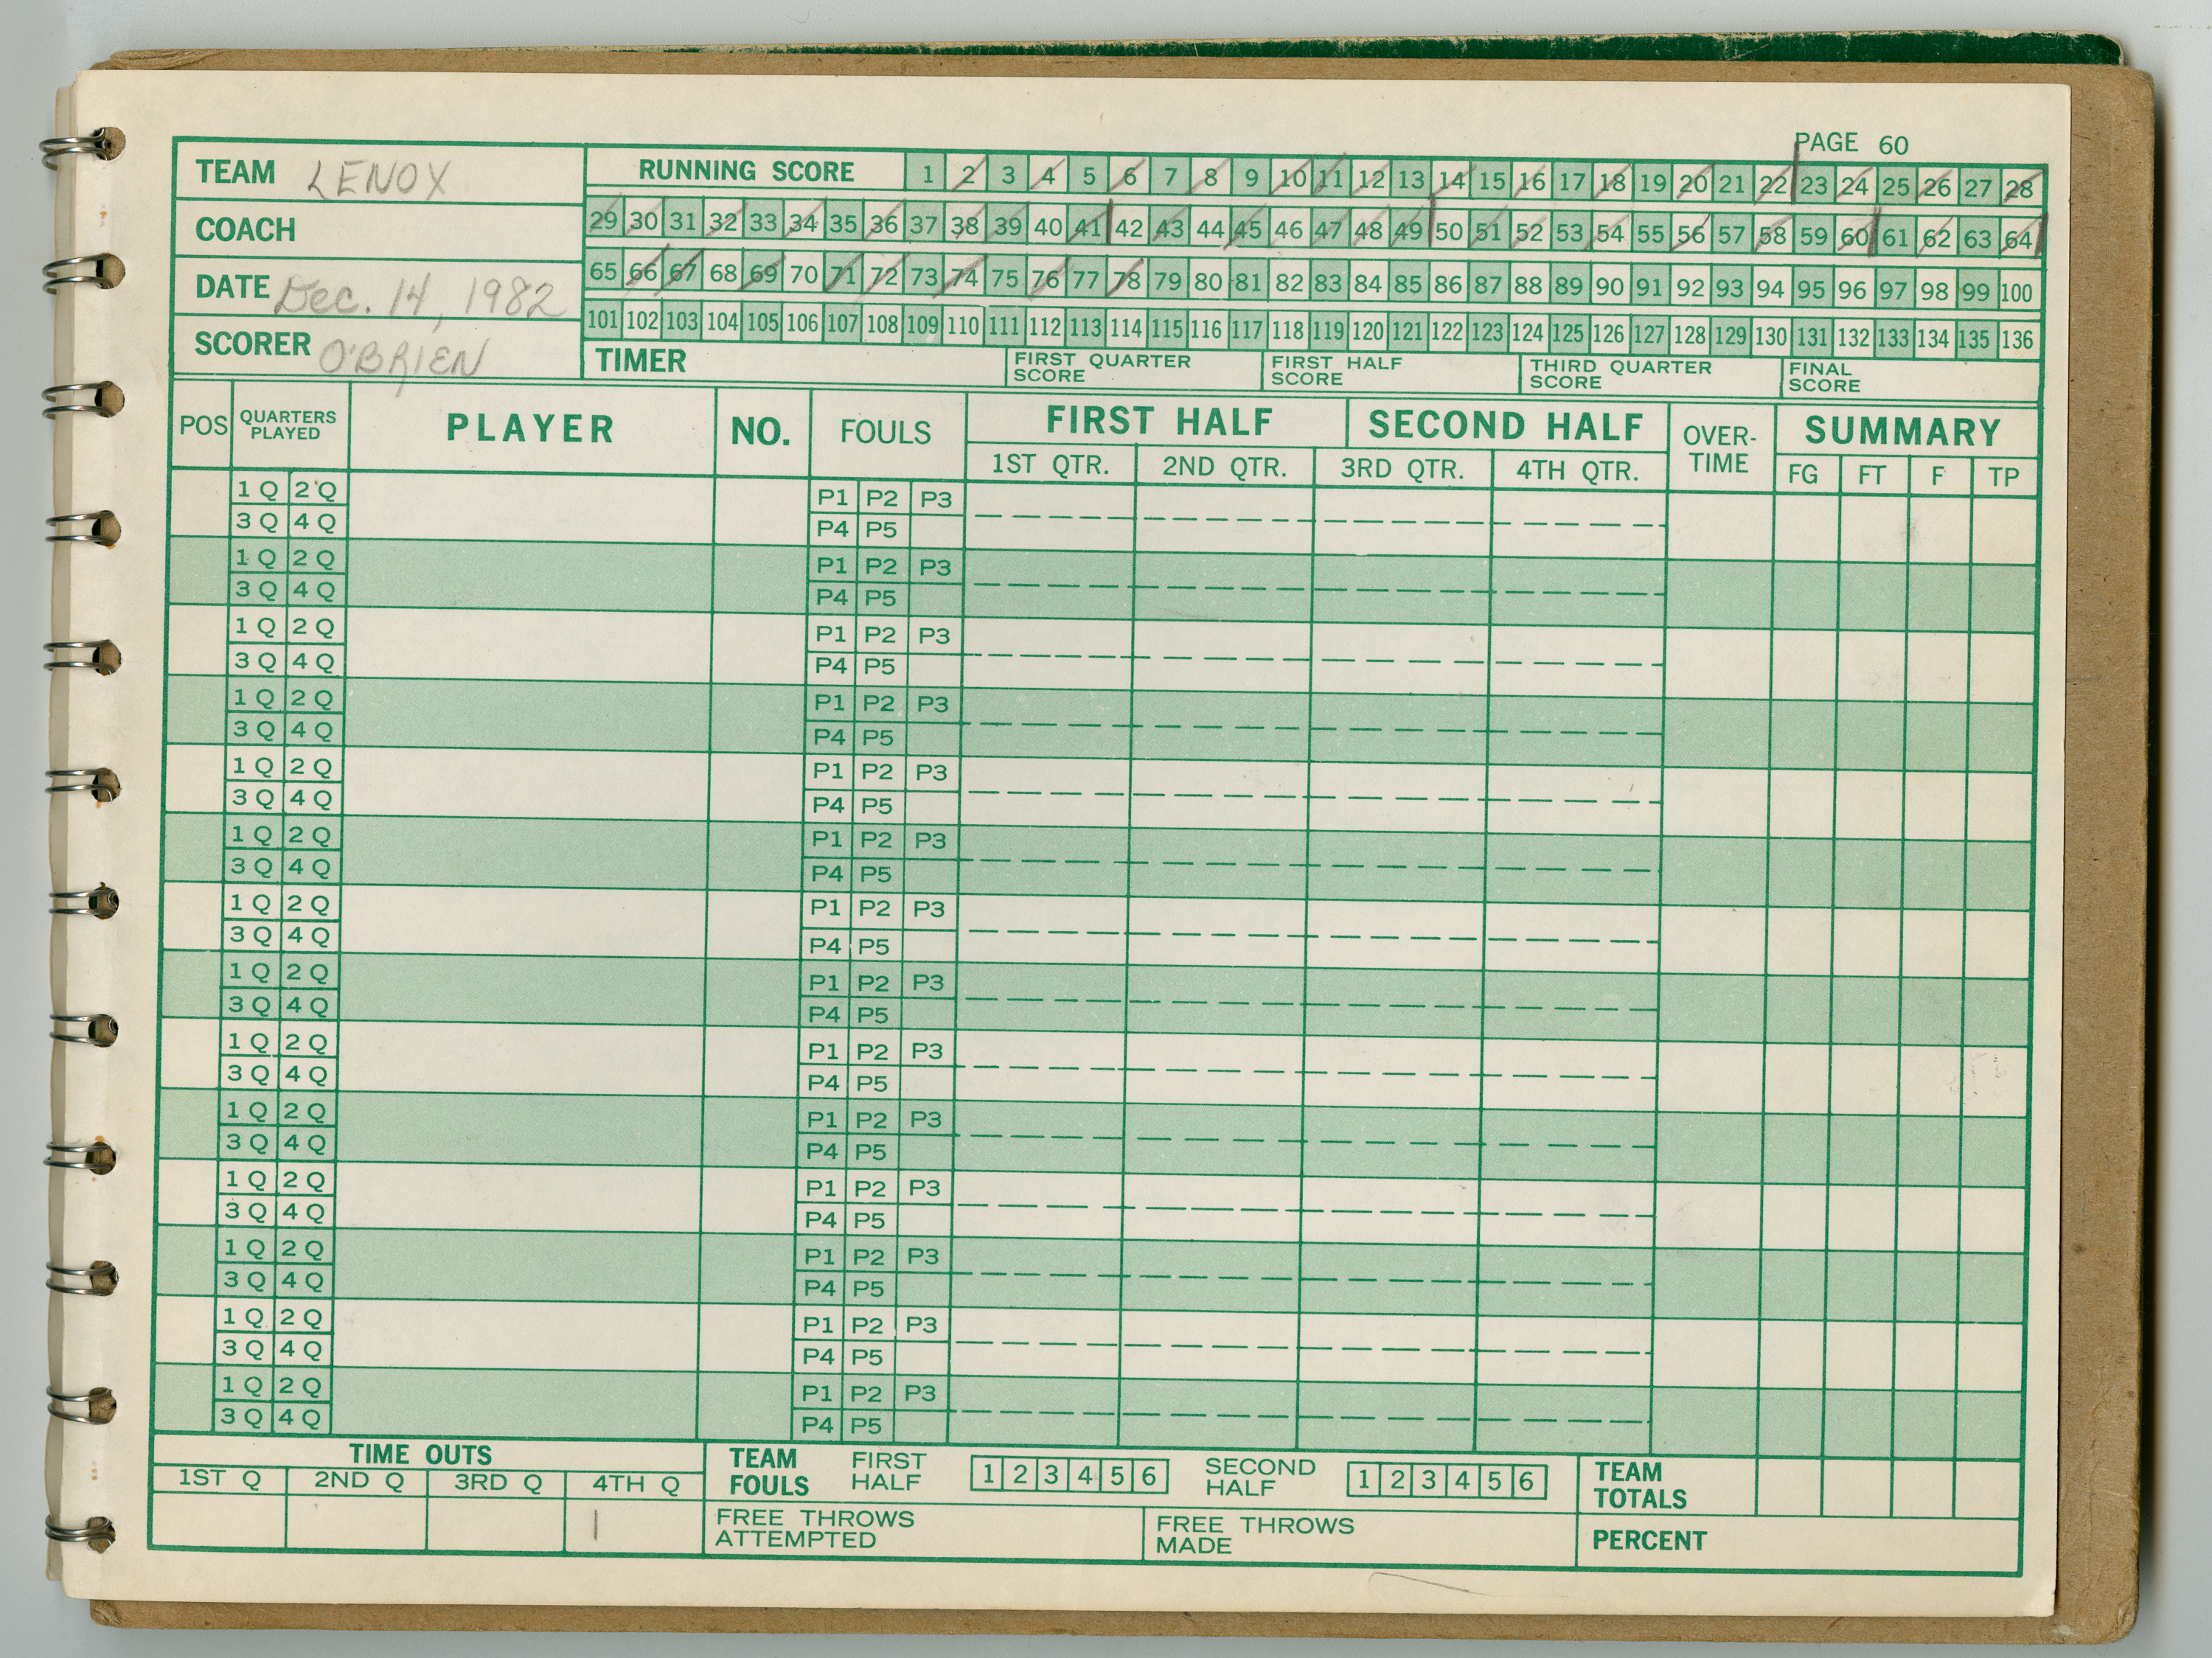 PAGE 60
TEAM LENOX
RUNNING SCORE 1 2 3 4 5 6 7 8 9 10 11 12 13 14 15 16 17 18 19 20 21 22 23 24 25 26 27 28
COACH
29 30 31 32 33 34 35 36 37 38 39 40 41 42 43 44 45 46 47 48 49 50 51 52 53 54 55 56 57 58 59 60 61 62 63 64
DATE Dec. 14, 1982
65 66 67 68 69 70 71 72 73 74 75 76 77 78 79 80 81 82 83 84 85 86 87 88 89 90 91 92 93 94 95 96 97 98 99 100
101 102 103 104 105 106 107 108 109 110 111 112 113 114 115 116 117 118 119 120 121 122 123 124 125 126 127 128 129 130 131 132 133 134 135 136
SCORER O'BRIEN
TIMER
FIRST QUARTER SCORE
FIRST HALF SCORE
THIRD QUARTER SCORE
FINAL SCORE
POS QUARTERS PLAYED PLAYER NO. FOULS FIRST HALF SECOND HALF OVER-TIME SUMMARY
1ST QTR. 2ND QTR. 3RD QTR. 4TH QTR. FG FT F TP
1 Q 2 Q P1 P2 P3
3 Q 4 Q P4 P5
1 Q 2 Q P1 P2 P3
3 Q 4 Q P4 P5
1 Q 2 Q P1 P2 P3
3 Q 4 Q P4 P5
1 Q 2 Q P1 P2 P3
3 Q 4 Q P4 P5
1 Q 2 Q P1 P2 P3
3 Q 4 Q P4 P5
1 Q 2 Q P1 P2 P3
3 Q 4 Q P4 P5
1 Q 2 Q P1 P2 P3
3 Q 4 Q P4 P5
1 Q 2 Q P1 P2 P3
3 Q 4 Q P4 P5
1 Q 2 Q P1 P2 P3
3 Q 4 Q P4 P5
1 Q 2 Q P1 P2 P3
3 Q 4 Q P4 P5
1 Q 2 Q P1 P2 P3
3 Q 4 Q P4 P5
1 Q 2 Q P1 P2 P3
3 Q 4 Q P4 P5
1 Q 2 Q P1 P2 P3
3 Q 4 Q P4 P5
1 Q 2 Q P1 P2 P3
3 Q 4 Q P4 P5
TIME OUTS
1ST Q 2ND Q 3RD Q 4TH Q
|
TEAM FOULS FIRST HALF 1 2 3 4 5 6 SECOND HALF 1 2 3 4 5 6
TEAM TOTALS
FREE THROWS ATTEMPTED
FREE THROWS MADE
PERCENT